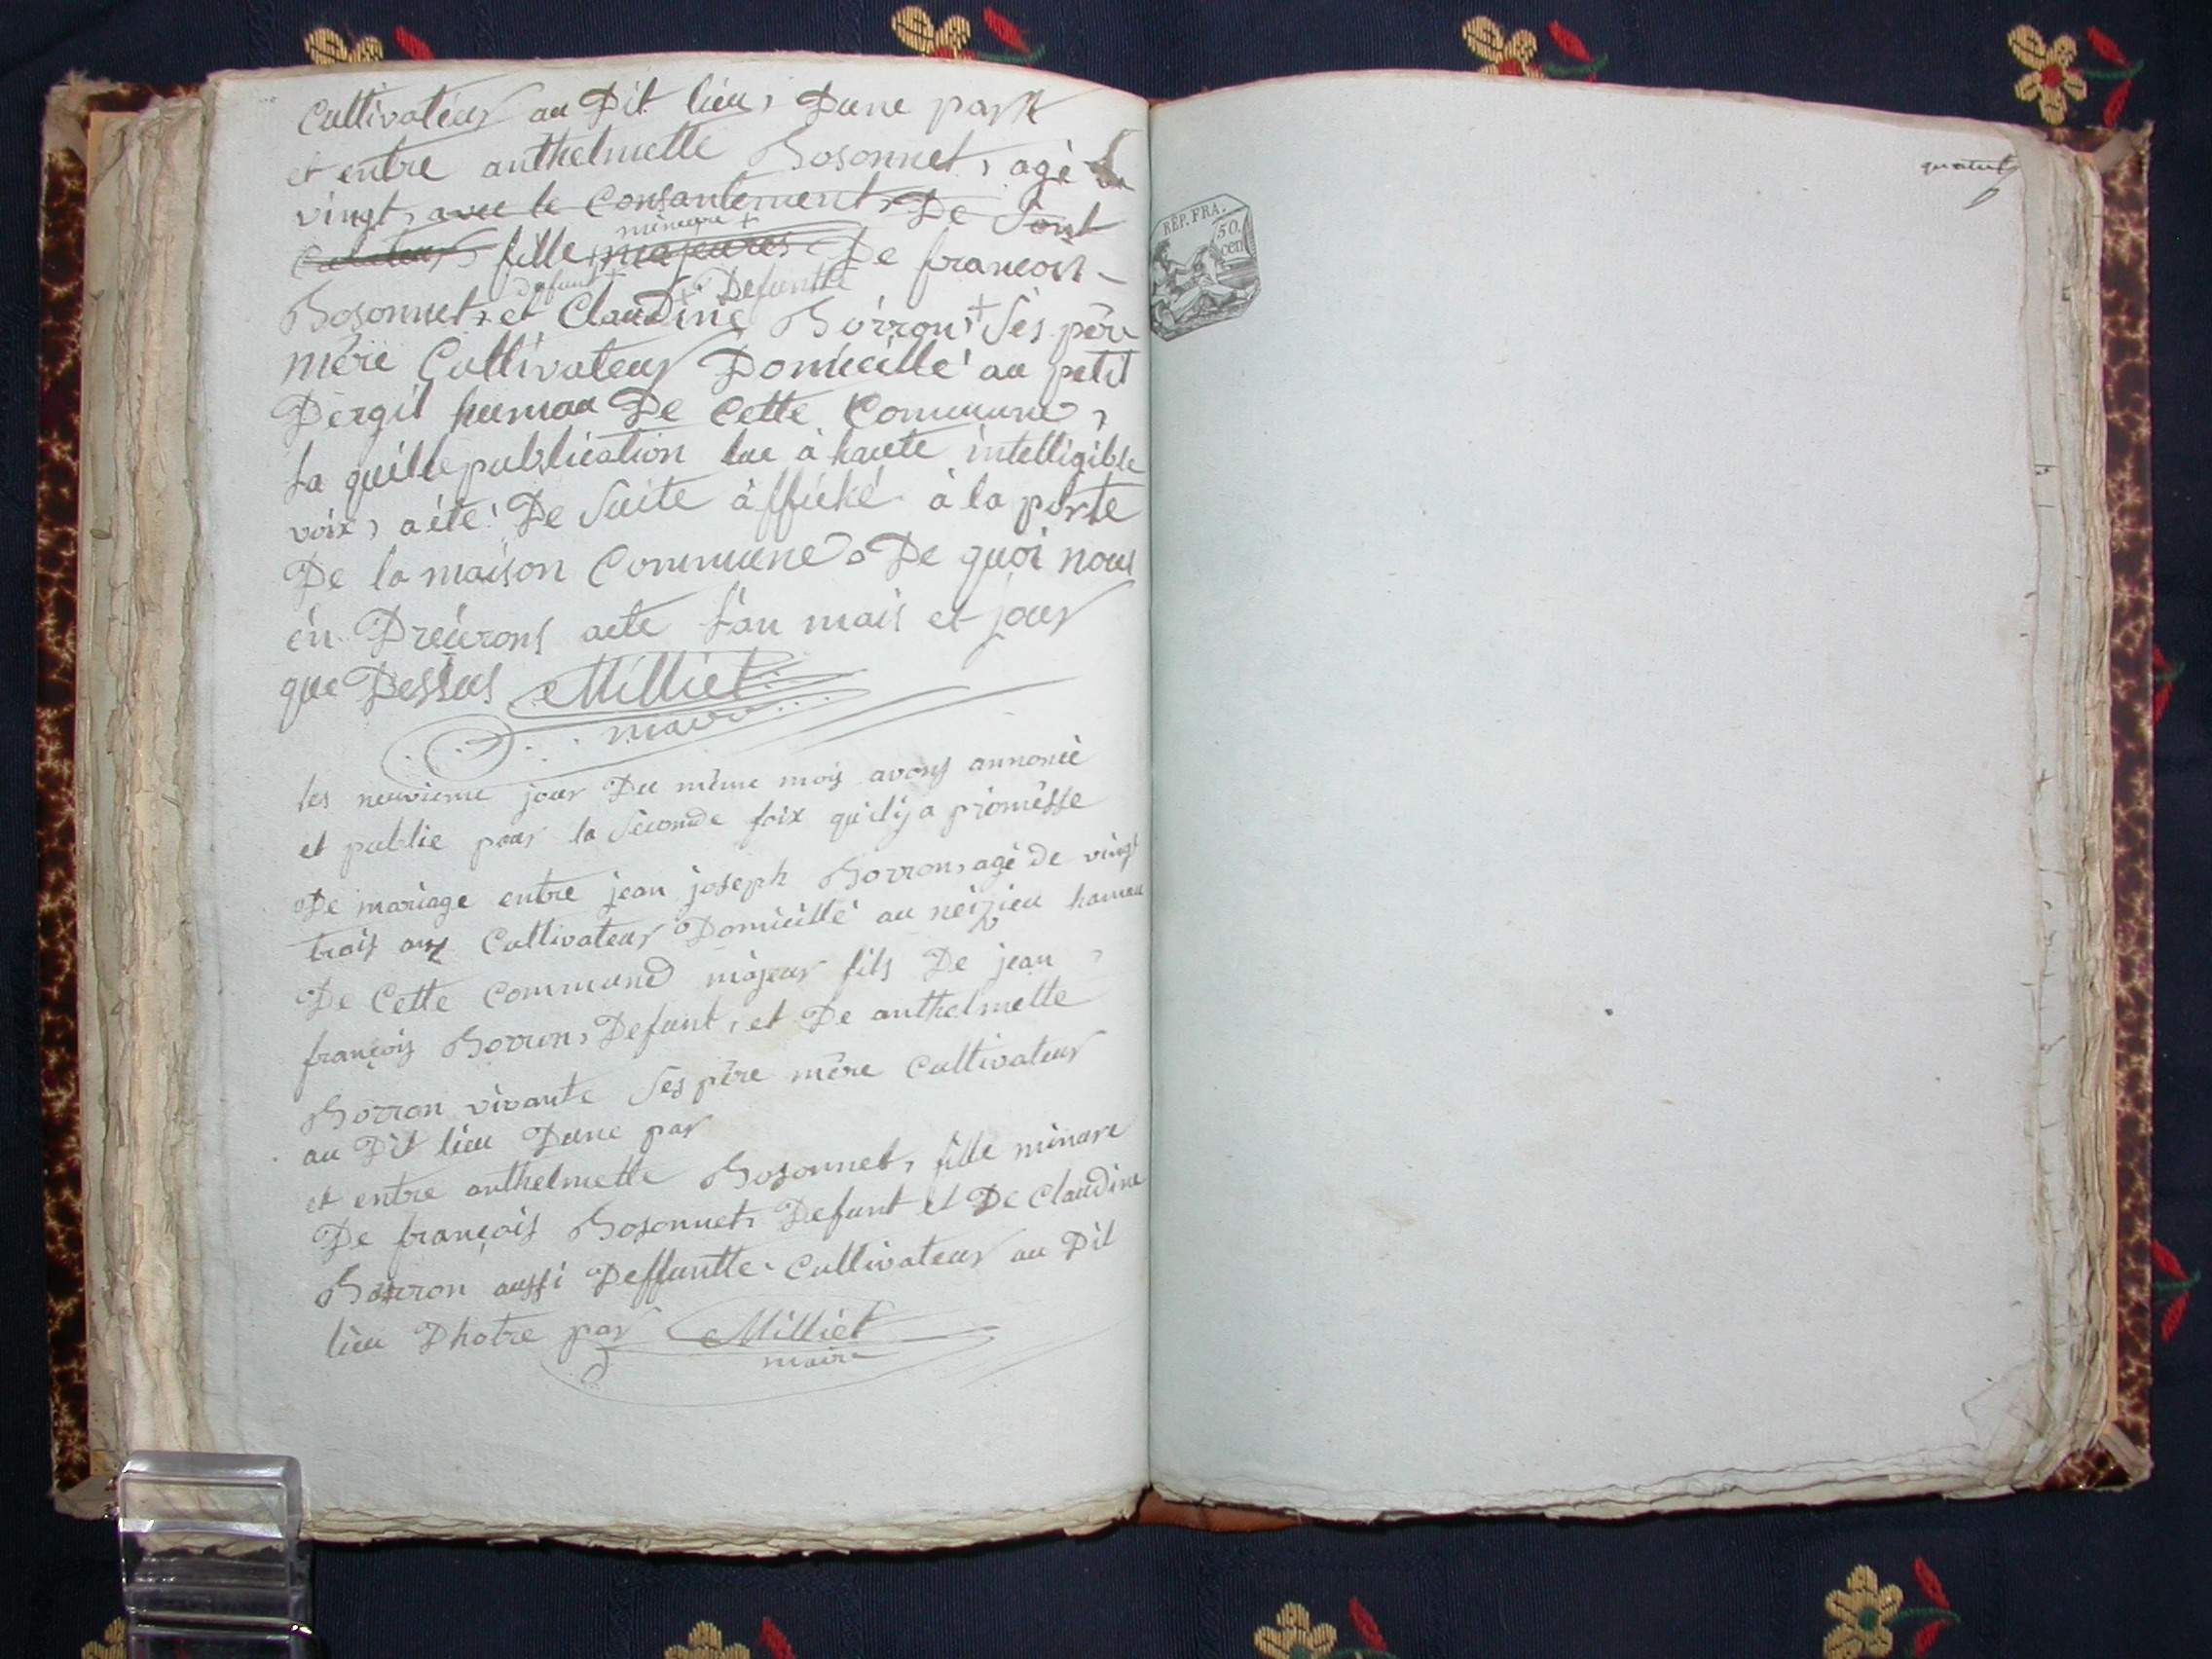 Cultivateur au Dit lieu, Dune part
et entre anthelmette Bosonnet, agé de
vingt, avec le consantement De Sont
Culateur fille majeures De françois
mineure +
Bosonnet, et Claudine Borron, + Ses père
defunt + + Defuntte
mère Cultivateur Domicillé au petit
Dergit humau De Cette Commune,
La quelle publication lue à haute intelligible
voix, a été De Suite àffiché à la porte
De la maison Commune De quoi nous
èn Dreúrons acte L'an mais et jour
que Dessus Milliet
maire
les neuvieme jour Du même mois avons annoncè
et publie pour la Séconde foix quil y a promèsse
De mariage entre jean joseph Borron, agé de vingt
trois ans Cultivateur Domicillé au neizieu hameau
De Cette Commune màjeur fils De jean
françois Borron, Defunt, et De anthelmette
Borron vivante Ses père mère Cultivateur
au Dit lieu Dune par
et entre anthelmette Bosonnet, fille minure
De françois Bosonnet, Defunt et De Claudine
Borron aussi Deffuntte Cultivateur au Dit
lieu Dhotre par Milliet
maire
RÉP. FRA.
50.
cen